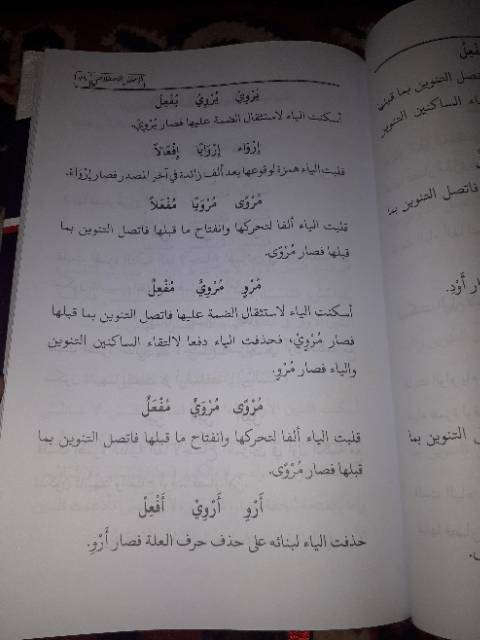 يُرْوِيْ يُرْوِيُ يُفْعِلُ
أسكنت الياء لاستثقال الضمة عليها فصار يُرْوِيْ.
إِرْوَاء إِرْوَايًا إِفْعَالًا
قلبت الياء همزة لوقوعها بعد ألف زائدة في آخر المصدر فصار إِرْوَاءً.
مُرْوًى مُرْوَيًا مُفْعَلًا
قلبت الياء ألفا لتحركها وانفتاح ما قبلها فاتصل التنوين بما
قبلها فصار مُرْوًى.
مُرْوٍ مُرْوِيٌ مُفْعِلٌ
أسكنت الياء لاستثقال الضمة عليها فاتصل التنوين بما قبلها
فصار مُرْوِيْ، فحذفت الياء دفعا لالتقاء الساكنين التنوين
والياء فصار مُرْوٍ.
مُرْوًى مُرْوَيٌ مُفْعَلٌ
قلبت الياء ألفا لتحركها وانفتاح ما قبلها فاتصل التنوين بما
قبلها فصار مُرْوًى.
أَرْوِ أَرْوِيْ أَفْعِلْ
حذفت الياء لبنائه على حذف حرف العلة فصار أَرْوِ.
اتصل التنوين بما قبلها
الساكنين التنوين
فاتصل التنوين بما
ار أَوْدِ.
التنوين بما